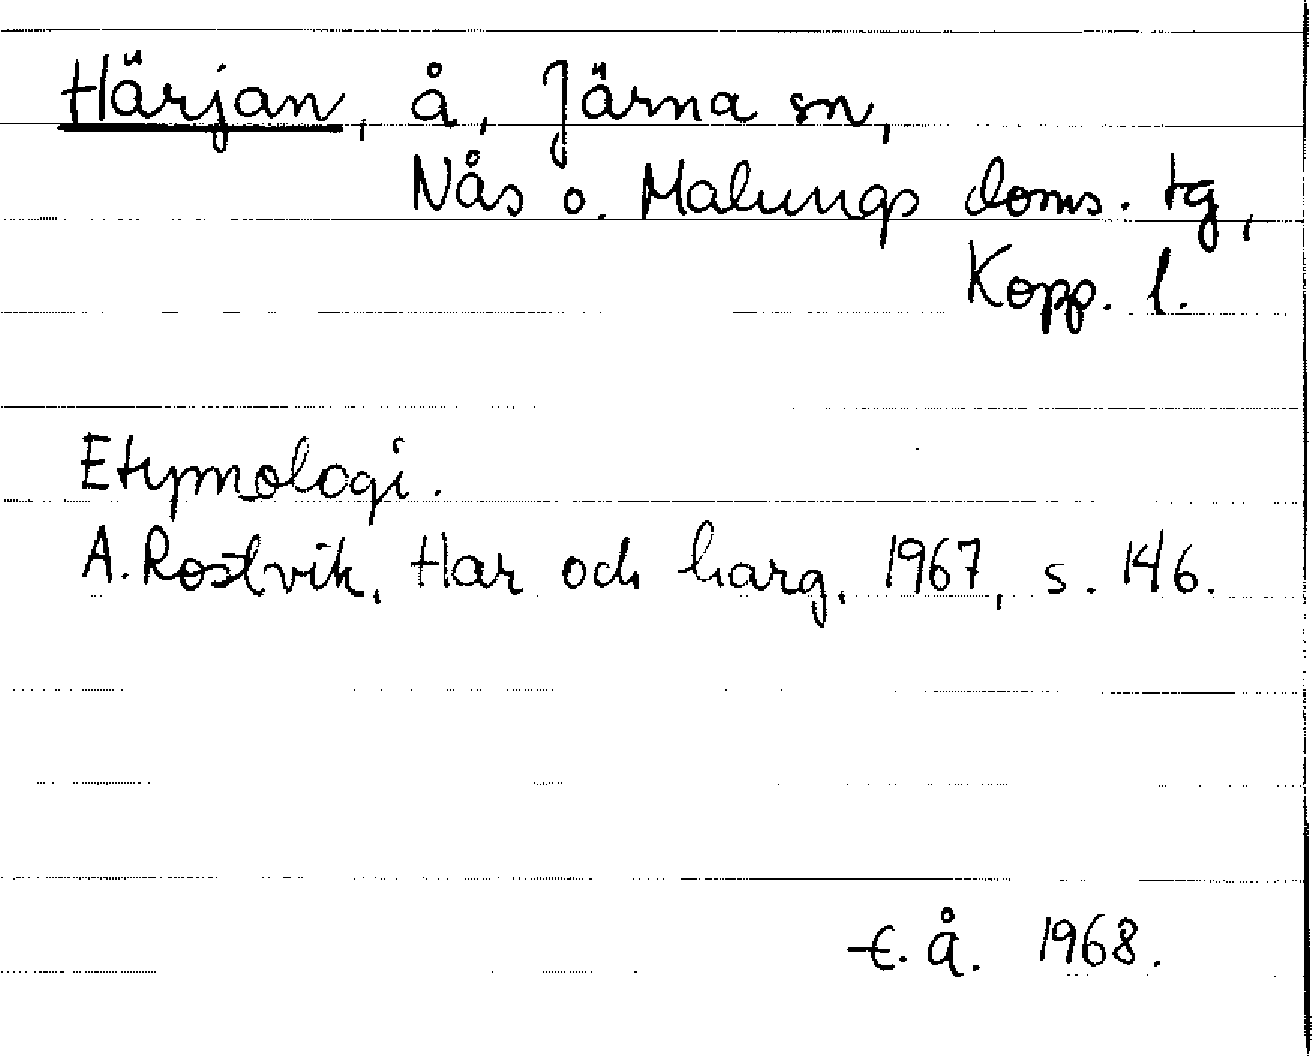 Härjan, å, Järna sn,
Nås o. Malungs doms. tg,
Kopp. l.
Etymologi.
A. Rostvik, Har och harg, 1967, s. 146.
E. Å. 1968.